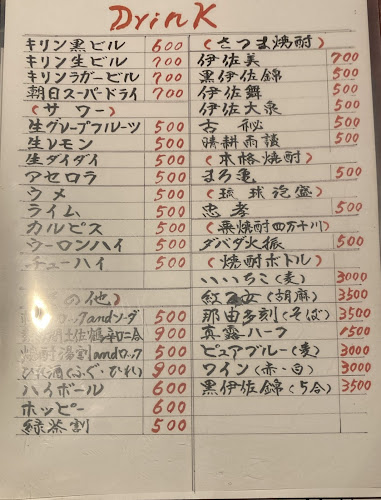 Drink
キリン黒ビル 600
キリン生ビル 700
キリンラガービル 700
朝日スーパードライ 700
(サワー)
生グレープフルーツ 500
生レモン 500
生ダイダイ 500
アセロラ 500
ウメ 500
ライム 500
カルピス 500
ウーロンハイ 500
チューハイ 500
の他)
ロックandソーダ 500
土佐鶴辛口一合 900
焼酎湯割andロック 500
ひれ酒(ふぐ・ひれ) 900
ハイボール 600
ホッピー 600
緑茶割 500
(さつま焼酎)
伊佐美 700
黒伊佐錦 500
伊佐舞 500
伊佐大泉 500
古秘 500
晴耕雨読 500
(本格焼酎)
まろ亀 500
(琉球泡盛)
忠孝 500
(栗焼酎四万十川)
ダバダ火振 500
(焼酎ボトル)
いいちこ(麦) 3000
紅乙女(胡麻) 3500
那由多刻(そば) 3500
真露ハーフ 1500
ピュアブルー(麦) 3000
ワイン(赤・白) 3000
黒伊佐錦(5合) 3500